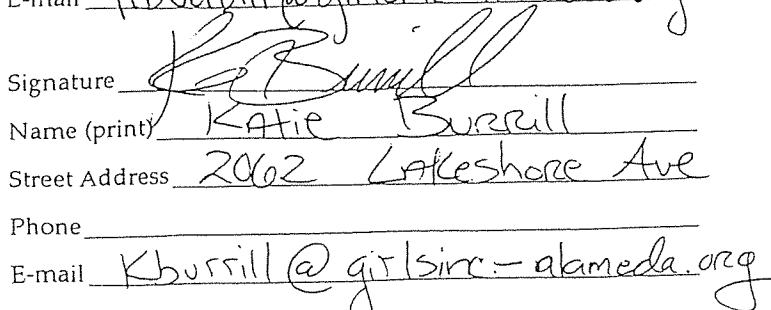 E-mail
Signature Ka Burrill
Name (print) Katie Burrill
Street Address 2062 Lakeshore Ave
Phone
E-mail Kburrill@girlsinc-alameda.org